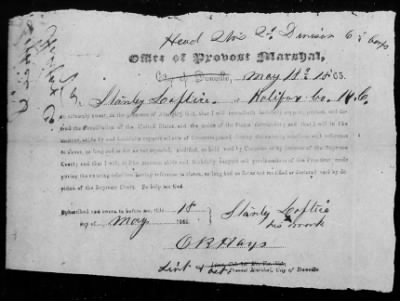 Head Qrs 2d Division 6th Corps
Office of Provost Marshal,
City of Danville, May 18th 1865.
I, Stanly Loftice, Halifax Co.
do solemnly swear, in the presence of Almighty God, that I will henceforth faithfully support, protect, and defend the Constitution of the United States, and the union of the States thereunder; and that I will in like
manner, abide by and faithfully support all acts of Congress passed during the existing rebellion with reference
to slaves, so long and so far as not repealed, modified, or held void by Congress or by decision of the Supreme
Court; and that I will, in like manner, abide and faithfully support all proclamations of the President made
during the existing rebellion having reference to slaves, so long and so far as not modified or declared void by decision of the Supreme Court. So help me God.
Subscribed and sworn to before me, this 18
day of May 1865.
Stanly Loftice
his mark
O B Hays
Lieut &
Provost Marshal, City of Danville